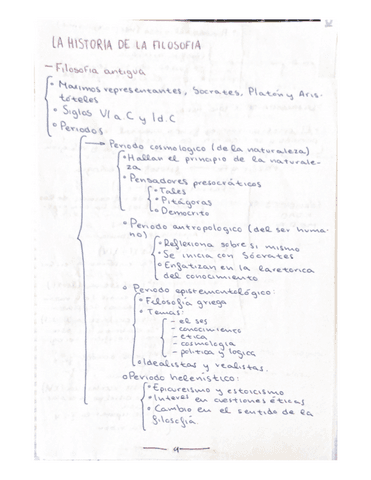 LA HISTORIA DE LA FILOSOFIA
— Filosofia antigua
• Maximos representantes, Socrates, Platón y Aris-
tóteles
• Siglos VI a C y I d.C
• Periodos
→ Periodo cosmologico (de la naturaleza)
• Hallan el principio de la naturale-
za
• Pensadores presocráticos
• Tales
• Pitágoras
• Democrito
• Periodo antropologico (del ser huma-
no)
• Reflexiona sobre si mismo
• Se inicia con Sócrates
• Enfatizan en la
del conocimiento
• Periodo epistemontológico:
• Filosofia griega
• Temas:
— el ser
— conocimiento
— etica
— cosmologia
— politica y logica
• Idealistas y realistas.
• Periodo helenistico:
• Epicureismo y estoicismo
• Interes en cuestiones éticas
• Cambio en el sentido de la
filosofia